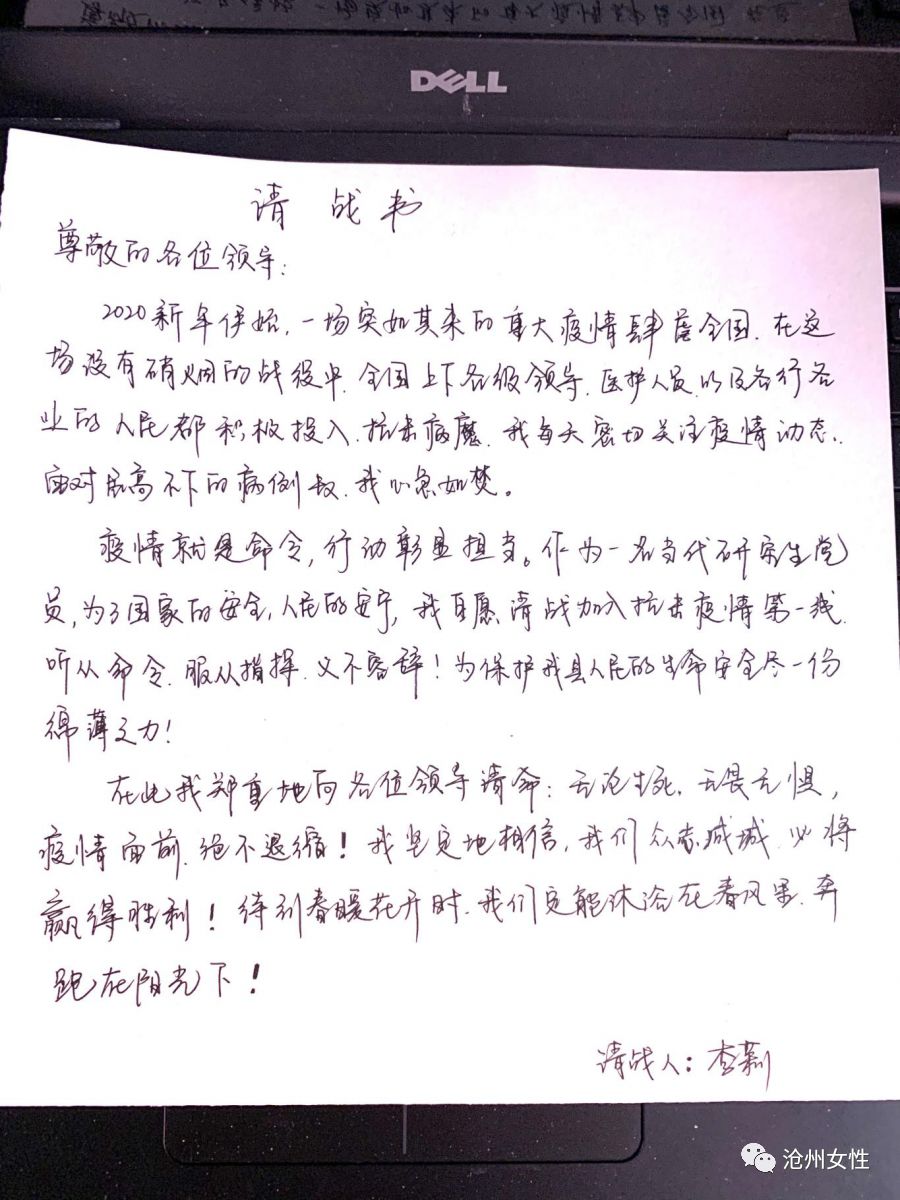 DELL
请战书
尊敬的各位领导:
2020新年伊始,一场突如其来的重大疫情肆虐全国.在这
场没有硝烟的战役中.全国上下各级领导.医护人员.以及各行各
业的人民都积极投入.抗击病魔.我每天密切关注疫情动态.
面对居高不下的病例数.我心急如焚。
疫情就是命令,行动彰显担当。作为一名当代研究生党
员,为了国家的安全,人民的安宁,我自愿请战加入抗击疫情第一线.
听从命令.服从指挥.义不容辞!为保护我县人民的生命安全尽一份
绵薄之力!
在此我郑重地向各位领导请命:无论生死.无畏无惧,
疫情面前.绝不退缩!我坚定地相信,我们众志成城.必将
赢得胜利!待到春暖花开时.我们定能沐浴在春风里.奔
跑在阳光下!
请战人:
沧州女性